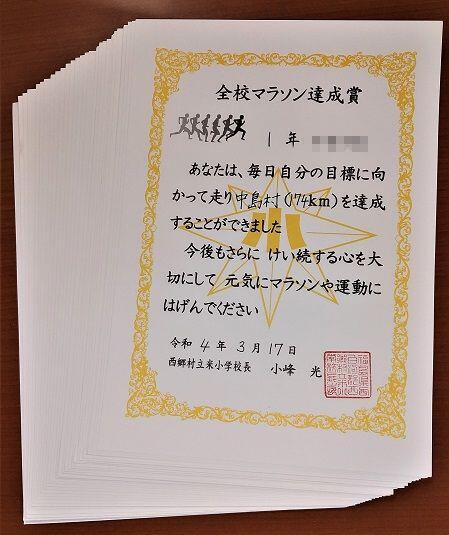 全校マラソン達成賞
1年
あなたは、毎日自分の目標に向
かって走り中島村(174km)を達成
することができました
今後もさらに けい続する心を大
切にして 元気にマラソンや運動に
はげんでください
令和 4 年 3 月 17 日
西郷村立米小学校長 小峰 光